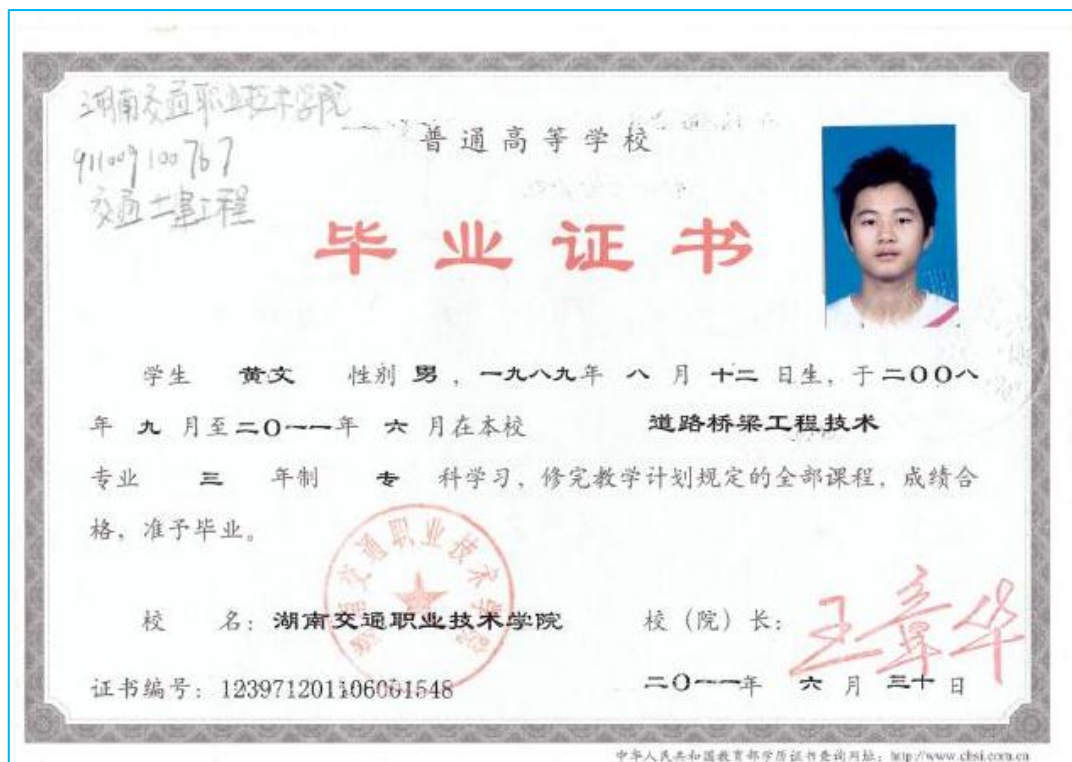 湖南交通职业技术学院
911009100767
交通土建工程
普通高等学校
毕业证书
学生 黄文 性别 男，一九八九年 八 月 十二 日生，于二〇〇八
年 九 月至二〇一一年 六 月在本校 道路桥梁工程技术
专业 三 年制 专 科学习，修完教学计划规定的全部课程，成绩合
格，准予毕业。
湖南交通职业技术学院
校 名：湖南交通职业技术学院 校（院）长：王章华
证书编号：123971201106001548 二〇一一年 六 月 三十 日
中华人民共和国教育部学历证书查询网址：http://www.chsi.com.cn